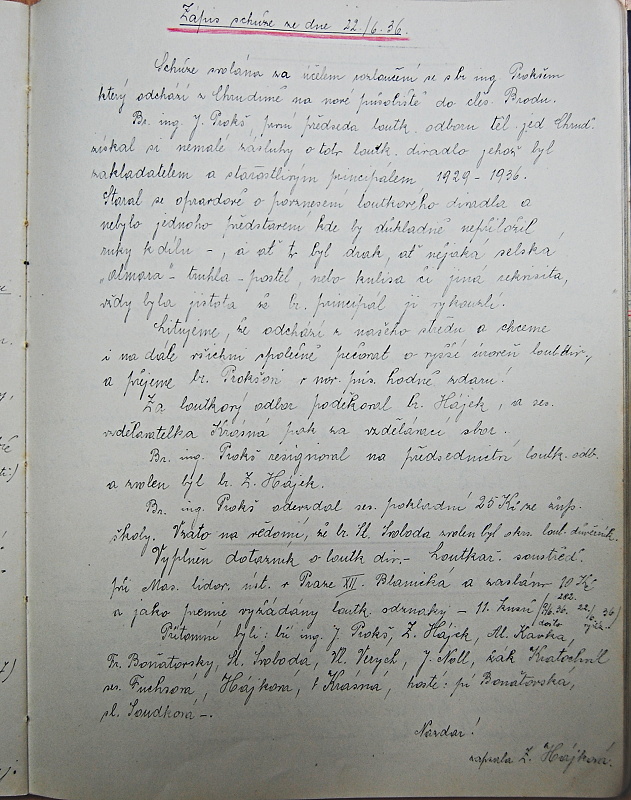 Zápis schůze ze dne 22./6. 36.
Schůze svolána za účelem rozloučení se s br. ing. Prokšem
který odchází z Chrudimě na nové působiště do Brodu.
Br. ing. J. Prokš, první předseda loutk. odboru těl. jed. Chrud.
získal si nemalé zásluhy o toto loutk. divadlo jehož byl
zakladatelem a starostlivým principálem, 1929 - 1936.
Staral se opravdově o povznesení loutkového divadla a
nebylo jednoho představení kde by důkladně nepřiložil
ruky k dílu -, a ať to byl drak, ať nějaká selská
„olmara" - truhla - postel, nebo kulisa či jiná rekvisita,
vždy byla jistota že br. principál ji vykouzlí.
Litujeme, že odchází z našeho středu a chceme
i na dále všichni společně pečovat o vyšší úroveň loutk. div.,
a přejeme br. Prokšovi v nov. půs. hodně zdaru!
Za loutkový odbor poděkoval br. Hájek, a ses.
vzdělavatelka Krásná pak za vzdělávací sbor.
Br. ing. Prokš resignoval na předsednictví loutk. odb.
a zvolen byl br. Z. Hájek.
Br. ing. Prokš odevzdal ses. pokladní 25 Kč ze
školy. Vzato na vědomí, že br. Sl. Svoboda zvolen byl okrs. lout. důvěrník.
Vyplněn dotazník o loutk. div. - Loutkář. soustřed.
při Mas. lidov. úst. v Praze XII. Blanická a zasláno 10 Kč
a jako premie vyžádány loutk. odznaky - 11. kusů
došlo
Přítomni byli: bří ing. J. Prokš, Z. Hájek, Al. Kavka,
Fr. Boňatovský, Sl. Svoboda, Vl. Verych, J. Noll, žák Kratochvíl
ses. Fuchsová, Hájková, Krásná, hosté: pí Boňatovská,
sl. Soudková -.
Nazdar!
zapsala Z. Hájková.